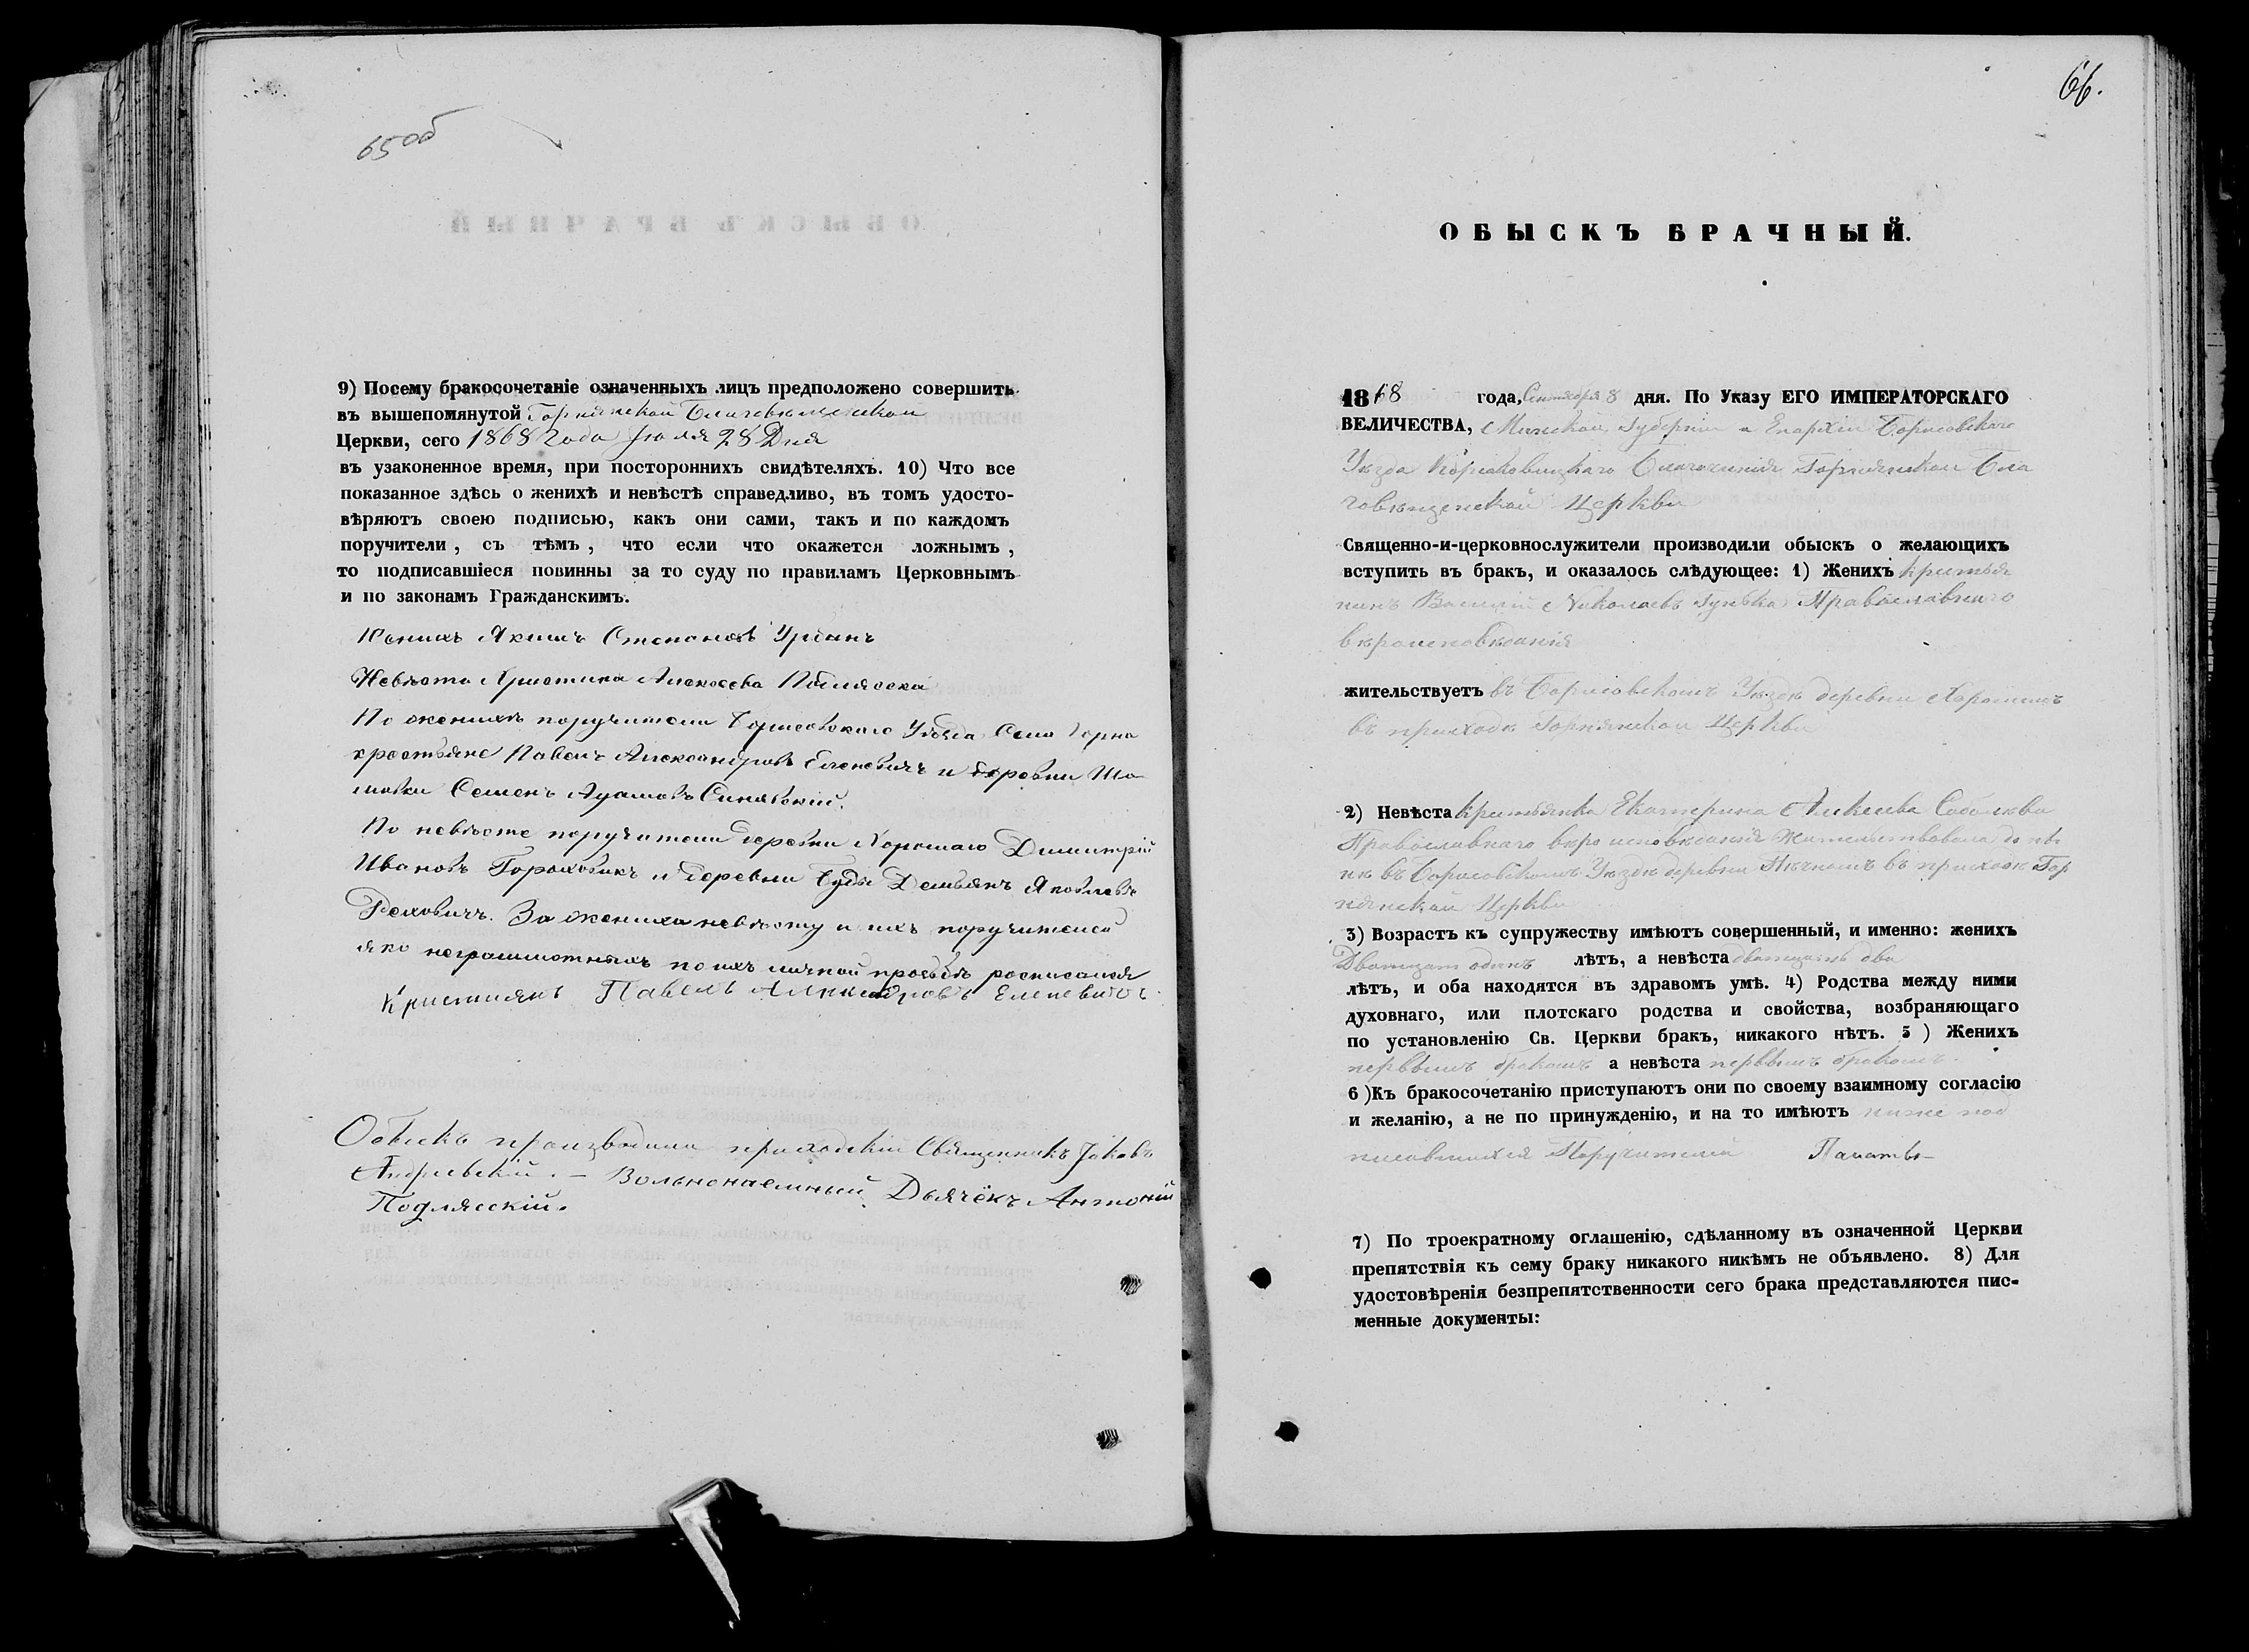 65об
9) Посему бракосочетаніе означенныхъ лицъ предположено совершить
въ вышепомянутой Горнянской Благовѣщенской
Церкви, сего 1868 Года Іюля 28 Дня
въ узаконенное время, при постороннихъ свидѣтеляхъ. 10) Что все
показанное здѣсь о женихѣ и невѣстѣ справедливо, въ томъ удосто-
вѣряютъ своею подписью, какъ они сами, такъ и по каждомъ
поручители, съ тѣмъ, что если что окажется ложнымъ,
то подписавшіеся повинны за то суду по правиламъ Церковнымъ
и по законамъ Гражданскимъ.
Женихъ Якимъ Степановъ Урбанъ
Невѣста Христина Алексеева
По женихѣ поручители Борисовскаго Уѣзда Села Горна
крестьяне Павелъ Александровъ Еленевичъ и деревни
Семенъ Адамовъ Синявскій.
По невѣсте поручители деревни Хорошаго Димитрій
Ивановъ и деревни Буды Демьянъ Яковлевъ
За жениха невѣсту и ихъ поручителей
яко неграмотныхъ по их личной просьбѣ росписался
Кристиянъ Павелъ Еленевичъ
Обыскъ производили приходскій Священникъ Іаковъ
Андріевскій. — Вольнонаемный Дьячёкъ Антоній
Подлясскій.
66.
ОБЫСКЪ БРАЧНЫЙ.
1868 года, Сентября 8 дня. По Указу ЕГО ИМПЕРАТОРСКАГО
ВЕЛИЧЕСТВА, Минской Губерніи и Епархіи Борисовскаго
Уѣзда Благочинія Горнянской Бла
говѣщенской Церкви
Священно-и-церковнослужители производили обыскъ о желающихъ
вступить въ бракъ, и оказалось слѣдующее: 1) Женихъ кристья
нинъ Василій Николаевъ Гунька Православнаго
вѣроисповѣданія
жительствуетъ въ Борисовскомъ Уѣздѣ деревни
въ приходѣ Горнянской Церкви
2) Невѣста кристьянка Екатерина
Православнаго вѣроисповѣданія жительствовала до
нѣ въ Борисовскомъ Уѣздѣ деревни въ приходѣ Гор
нянской Церкви
3) Возрастъ къ супружеству имѣютъ совершенный, и именно: женихъ
Дватцать одинъ лѣтъ, а невѣста дватцать два
лѣтъ, и оба находятся въ здравомъ умѣ. 4) Родства между ними
духовнаго, или плотскаго родства и свойства, возбраняющаго
по установленію Св. Церкви бракъ, никакого нѣтъ. 5 ) Женихъ
первымъ бракомъ а невѣста первымъ бракомъ.
6 )Къ бракосочетанію приступаютъ они по своему взаимному согласію
и желанію, а не по принужденію, и на то имѣютъ ниже под
писавшихся Поручителей
7) По троекратному оглашенію, сдѣланному въ означенной Церкви
препятствія къ сему браку никакого никѣмъ не объявлено. 8) Для
удостовѣренія безпрепятственности сего брака представляются пис-
менные документы: